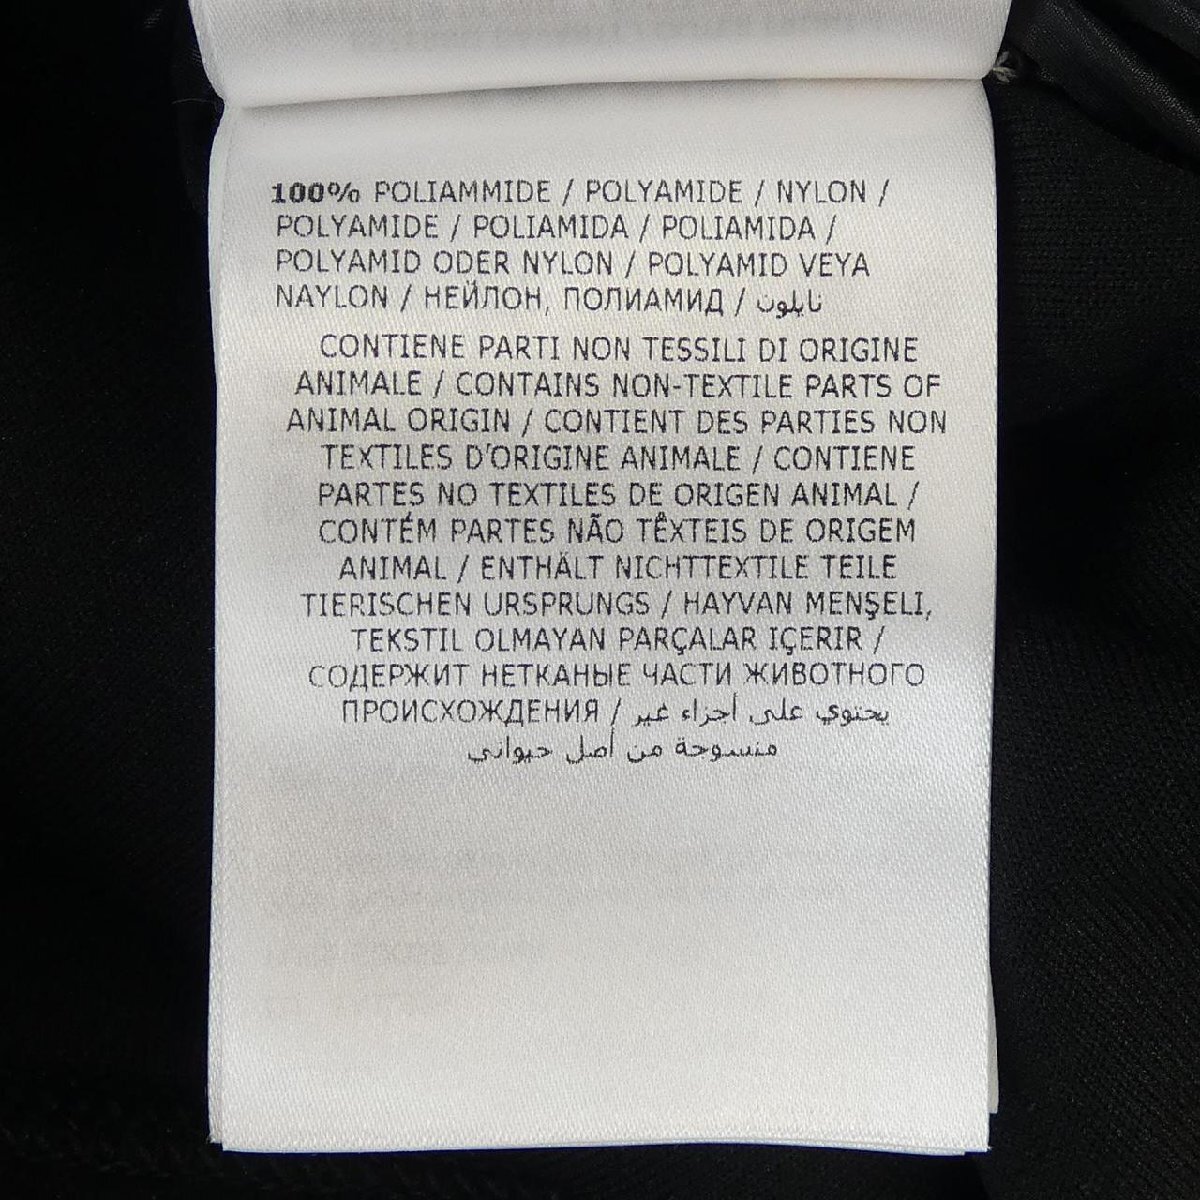 100% POLIAMMIDE / POLYAMIDE / NYLON /
POLYAMIDE / POLIAMIDA / POLIAMIDA /
POLYAMID ODER NYLON / POLYAMID VEYA
NAYLON / НЕЙЛОН, ПОЛИАМИД / نايلون
CONTIENE PARTI NON TESSILI DI ORIGINE
ANIMALE / CONTAINS NON-TEXTILE PARTS OF
ANIMAL ORIGIN / CONTIENT DES PARTIES NON
TEXTILES D'ORIGINE ANIMALE / CONTIENE
PARTES NO TEXTILES DE ORIGEN ANIMAL /
CONTÉM PARTES NÃO TÊXTEIS DE ORIGEM
ANIMAL / ENTHÄLT NICHTTEXTILE TEILE
TIERISCHEN URSPRUNGS / HAYVAN MENŞELİ,
TEKSTİL OLMAYAN PARÇALAR İÇERİR /
СОДЕРЖИТ НЕТКАНЫЕ ЧАСТИ ЖИВОТНОГО
ПРОИСХОЖДЕНИЯ / يحتوي على أجزاء غير
منسوجة من أصل حيواني